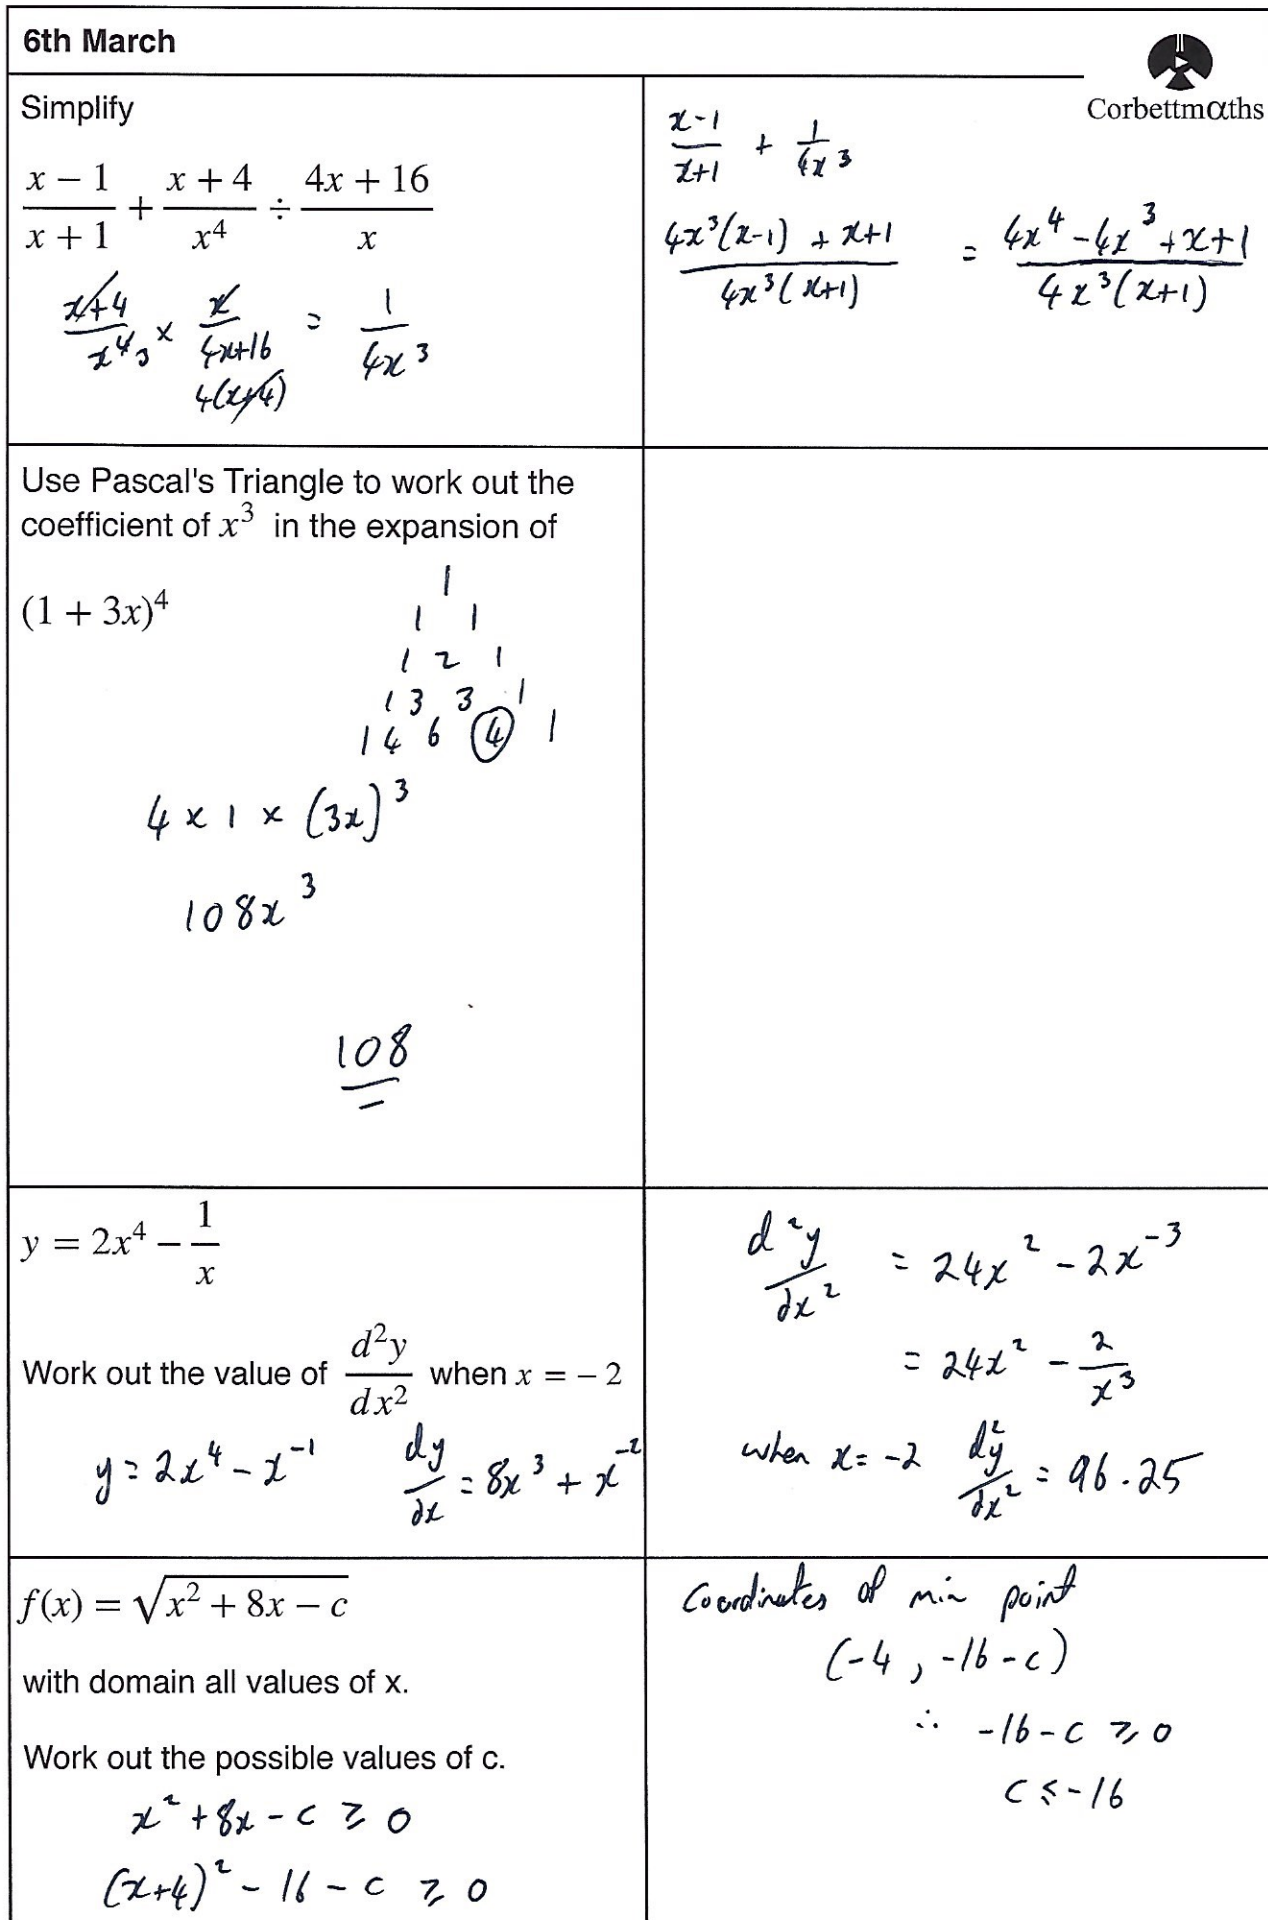 6th March
Corbettmαths
Simplify
x − 1/x + 1 + x + 4/x⁴ ÷ 4x + 16/x
x+4/x⁴ 3 × x/4x+16 = 1/4x³
4(x+4)
x-1/x+1 + 1/4x³
4x³(x-1) + x+1/4x³(x+1) = 4x⁴ - 4x³ + x+1/4x³(x+1)
Use Pascal's Triangle to work out the
coefficient of x³ in the expansion of
(1 + 3x)⁴
1
1 1
1 2 1
1 3 3 1
1 4 6 4 1
4 × 1 × (3x)³
108x³
108
y = 2x⁴ − 1/x
Work out the value of d²y/dx² when x = − 2
y = 2x⁴ - x⁻¹ dy/dx = 8x³ + x⁻²
d²y/dx² = 24x² - 2x⁻³
= 24x² - 2/x³
when x = -2 dy²/dx² = 96.25
f(x) = √(x² + 8x − c)
with domain all values of x.
Work out the possible values of c.
x² + 8x - c ≥ 0
(x+4)² - 16 - c ≥ 0
Coordinates of min point
(-4, -16-c)
∴ -16-c ≥ 0
c ≤ -16